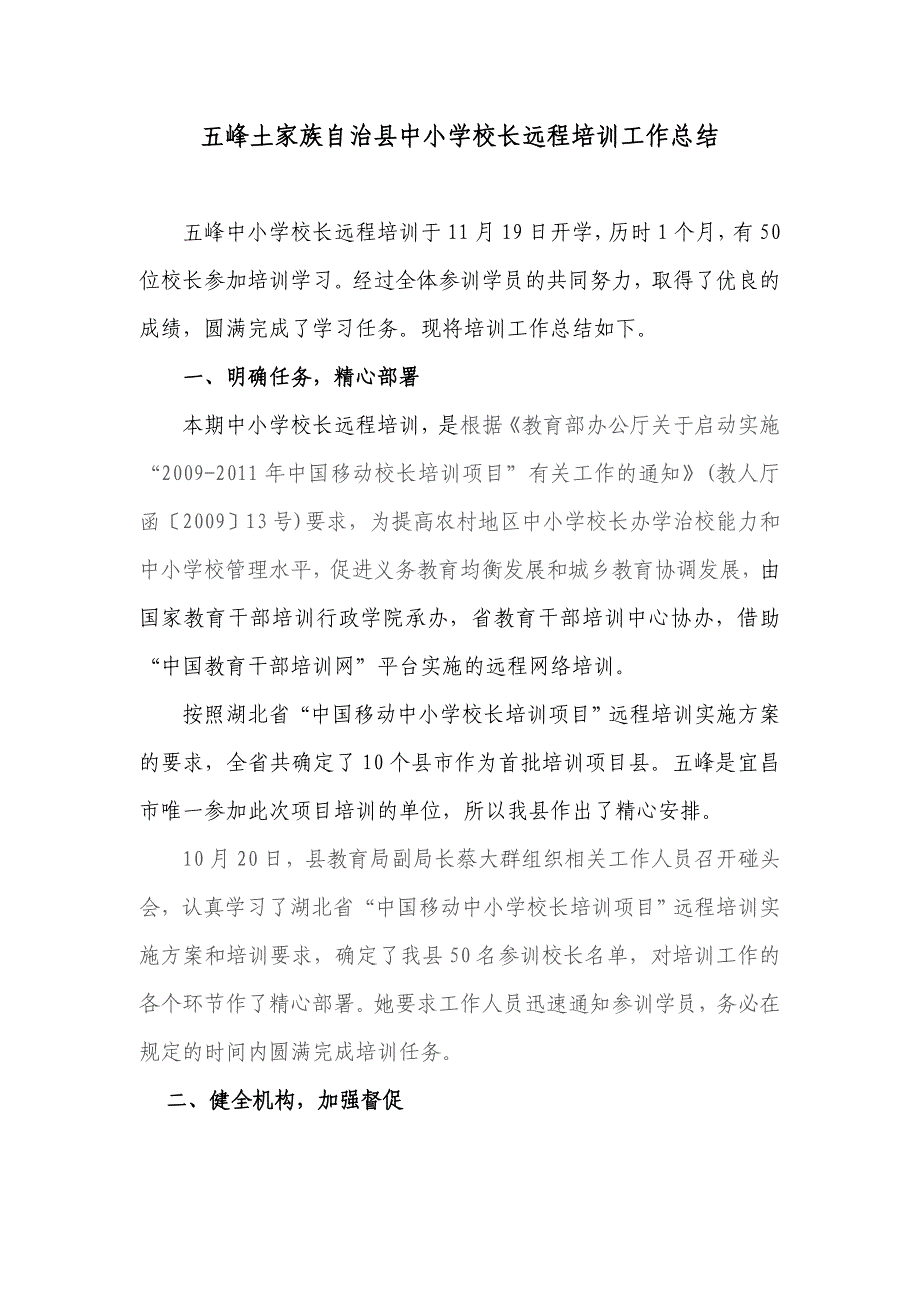 五峰土家族自治县中小学校长远程培训工作总结
五峰中小学校长远程培训于11月19日开学，历时1个月，有50
位校长参加培训学习。经过全体参训学员的共同努力，取得了优良的
成绩，圆满完成了学习任务。现将培训工作总结如下。
一、明确任务，精心部署
本期中小学校长远程培训，是根据《教育部办公厅关于启动实施
“2009-2011年中国移动校长培训项目”有关工作的通知》(教人厅
函〔2009〕13号)要求，为提高农村地区中小学校长办学治校能力和
中小学校管理水平，促进义务教育均衡发展和城乡教育协调发展，由
国家教育干部培训行政学院承办，省教育干部培训中心协办，借助
“中国教育干部培训网”平台实施的远程网络培训。
按照湖北省“中国移动中小学校长培训项目”远程培训实施方案
的要求，全省共确定了10个县市作为首批培训项目县。五峰是宜昌
市唯一参加此次项目培训的单位，所以我县作出了精心安排。
10月20日，县教育局副局长蔡大群组织相关工作人员召开碰头
会，认真学习了湖北省“中国移动中小学校长培训项目”远程培训实
施方案和培训要求，确定了我县50名参训校长名单，对培训工作的
各个环节作了精心部署。她要求工作人员迅速通知参训学员，务必在
规定的时间内圆满完成培训任务。
二、健全机构，加强督促